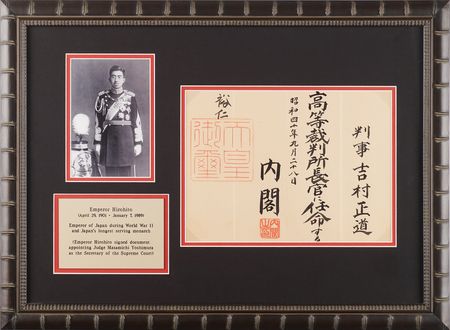 判事 吉村正道
高等裁判所長官に任命する
昭和四十年九月二十八日
内閣
裕仁
天皇
御璽
Emperor Hirohito
(April 29, 1901 - January 7, 1989)
Emperor of Japan during World War II
and Japan's longest serving monarch
(Emperor Hirohito signed document
appointing Judge Masamichi Yoshimura
as the Secretary of the Supreme Court)